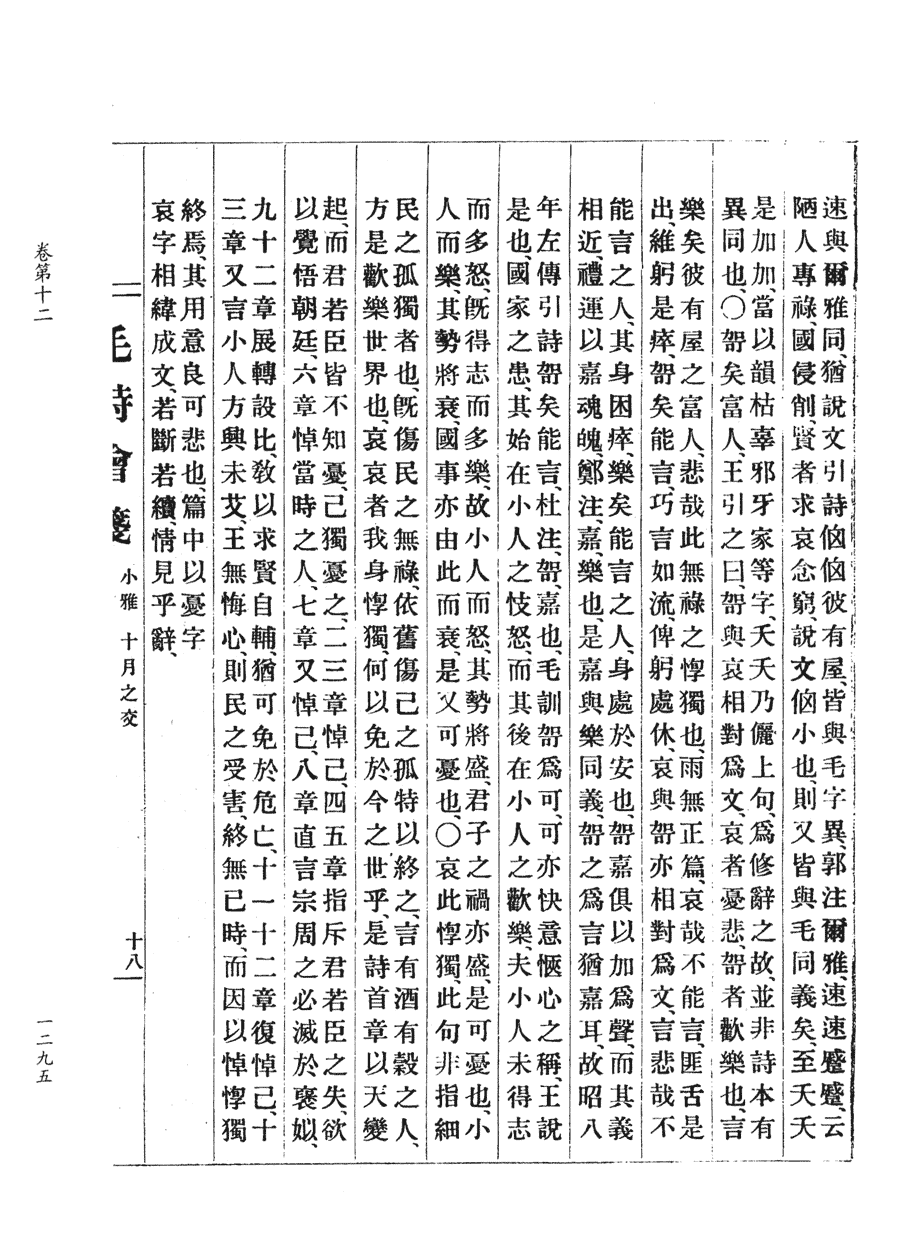 速與爾雅同、猶說文引詩佌佌彼有屋、皆與毛字異、郭注爾雅、速速蹙蹙、云
陋人專祿、國侵削、賢者求哀念窮、說文佌小也、則又皆與毛同義矣、至夭夭
是加加、當以韻枯辜邪牙家等字、夭夭乃儷上句、為修辭之故、並非詩本有
異同也、〇哿矣富人、王引之曰、哿與哀相對爲文、哀者憂悲、哿者歡樂也、言
樂矣彼有屋之富人、悲哉此無祿之惸獨也、雨無正篇、哀哉不能言、匪舌是
出、維躬是瘁、哿矣能言、巧言如流、俾躬處休、哀與哿亦相對爲文、言悲哉不
能言之人、其身困瘁、樂矣能言之人、身處於安也、哿嘉俱以加爲聲、而其義
相近、禮運以嘉魂魄、鄭注、嘉、樂也、是嘉與樂同義、哿之爲言猶嘉耳、故昭八
年左傳引詩哿矣能言、杜注、哿、嘉也、毛訓哿爲可、可亦快意愜心之稱、王說
是也、國家之患、其始在小人之忮怒、而其後在小人之歡樂、夫小人未得志
而多怒、旣得志而多樂、故小人而怒、其勢將盛、君子之禍亦盛、是可憂也、小
人而樂、其勢將衰、國事亦由此而衰、是又可憂也、〇哀此惸獨、此句非指細
民之孤獨者也、旣傷民之無祿、依舊傷己之孤特以終之、言有酒有穀之人、
方是歡樂世界也、哀哀者我身惸獨、何以免於今之世乎、是詩首章以天變
起、而君若臣皆不知憂、己獨憂之、二三章悼己、四五章指斥君若臣之失、欲
以覺悟朝廷、六章悼當時之人、七章又悼己、八章直言宗周之必滅於襃姒、
九十二章展轉設比、敎以求賢自輔、猶可免於危亡、十一十二章復悼己、十
三章又言小人方興未艾、王無悔心、則民之受害、終無已時、而因以悼惸獨
終焉、其用意良可悲也、篇中以憂字
哀字相緯成文、若斷若續、情見乎辭、
毛詩會箋 小雅 十月之交 十八
卷第十二
一二九五